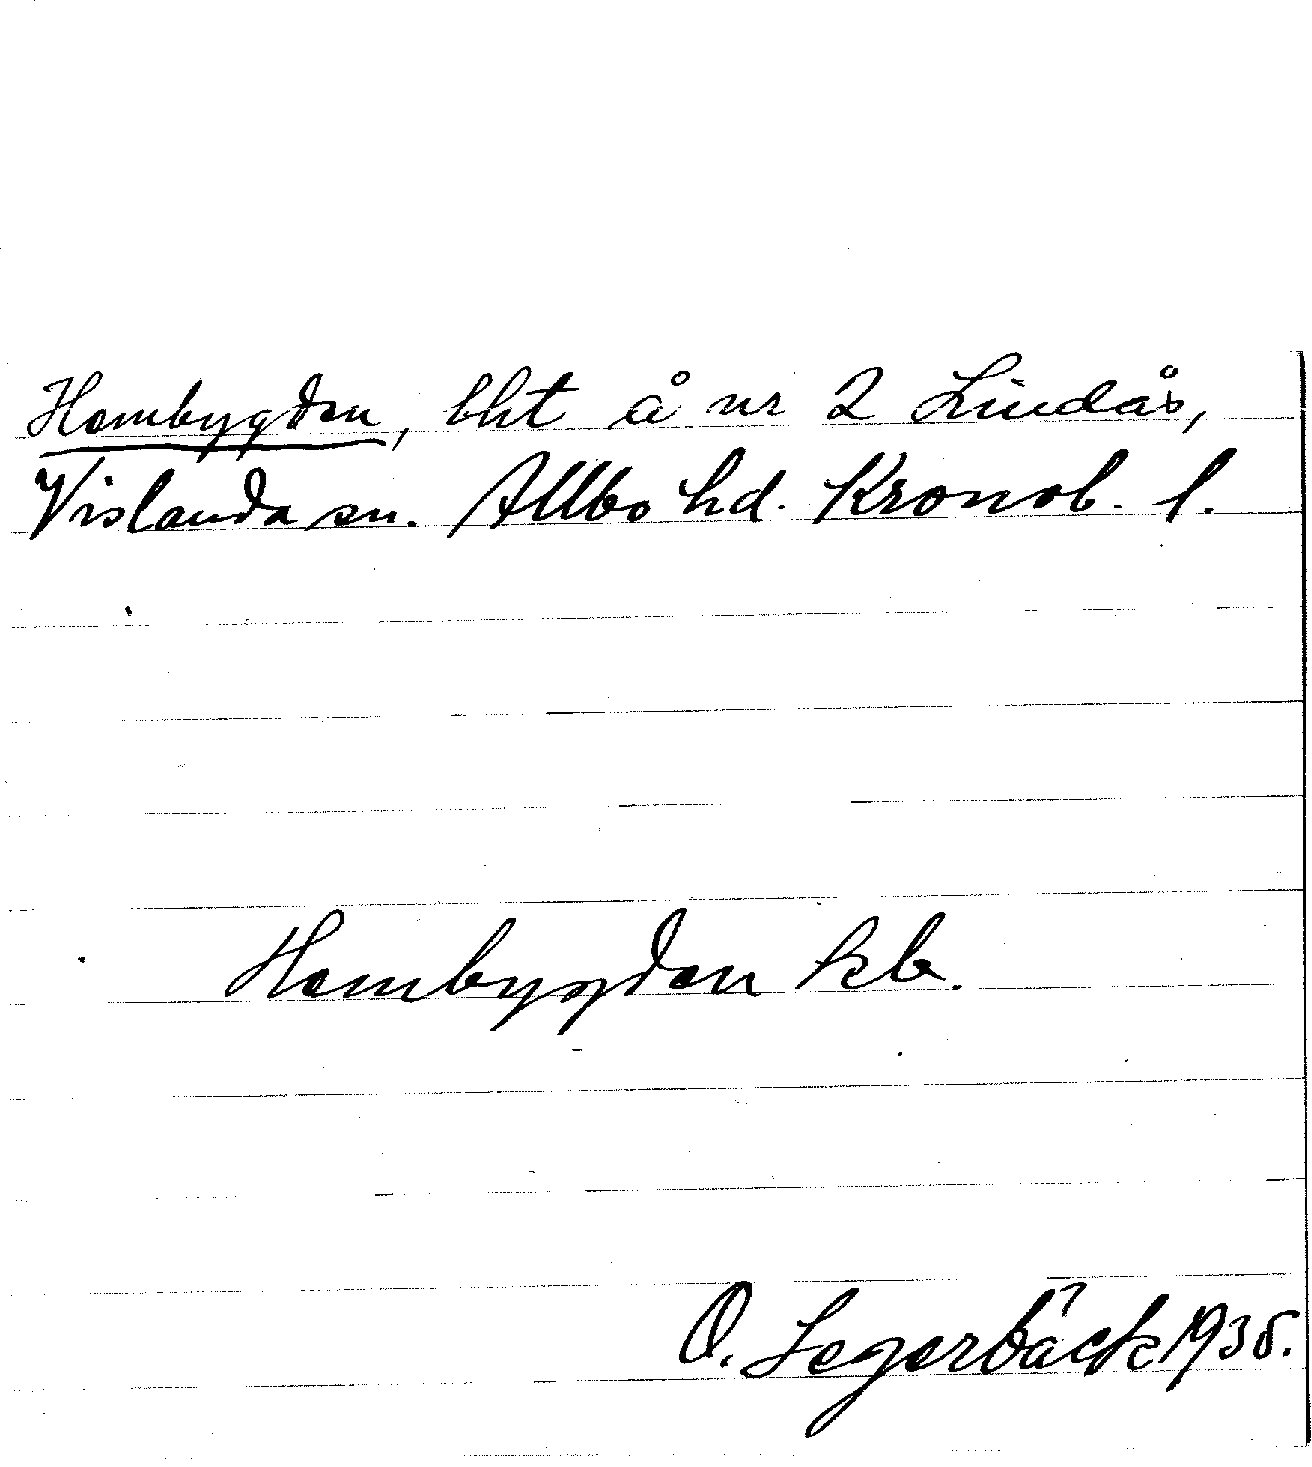 Hembygden, bht å nr 2 Lindås,
Vislanda sn. Allbo hd. Kronob. l.
Hembygden kb.
O. Segerbäck 1935.